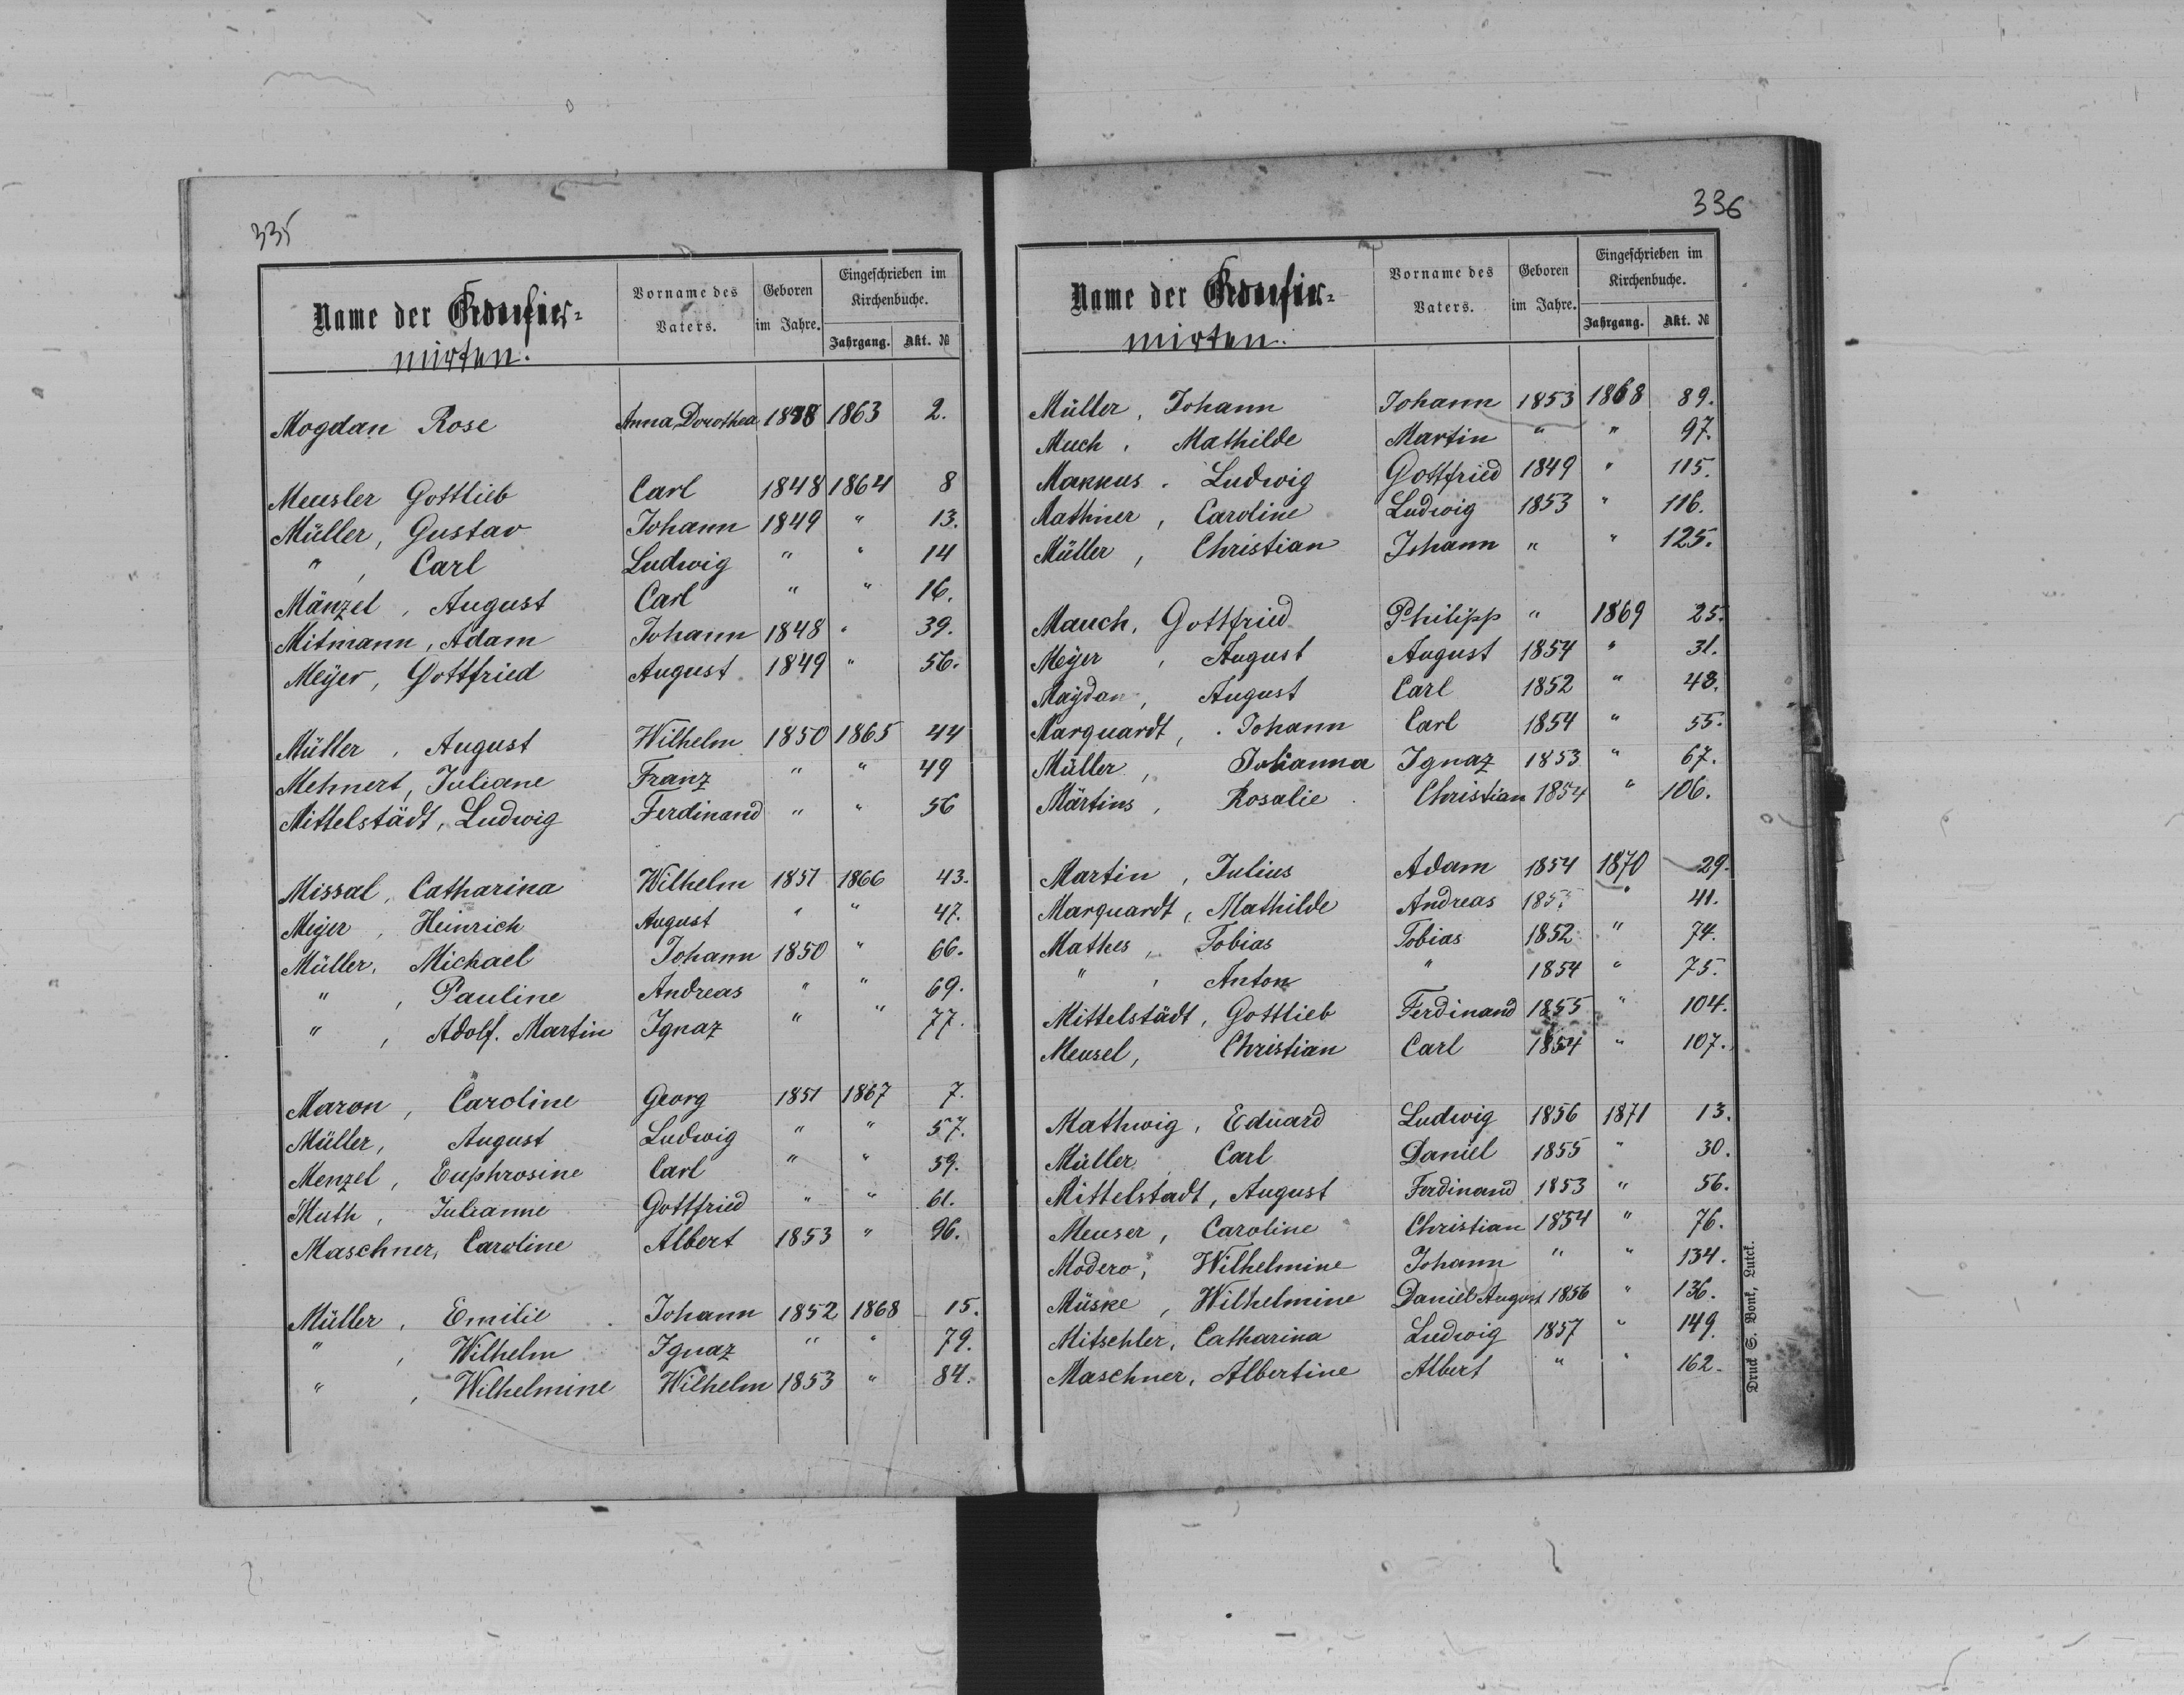 335
Name der Konfir=
mirten.
Vorname des Vaters.
Geboren im Jahre.
Eingeschrieben im Kirchenbuche.
Jahrgang. Akt. №
Mogdan Rose Anna Dorothea 1863 2.
Meusler Gottlieb Carl 1848 1864 8
Müller, Gustav Johann 1849 " 13.
" , Carl Ludwig " " 14
Mänzel, August Carl " " 16.
Mitmann, Adam Johann 1848 " 39.
Meÿer, Gottfried August 1849 " 56.
Müller, August Wilhelm 1850 1865 44
Mehnert, Juliane Franz " " 49
Mittelstädt, Ludwig Ferdinand " " 56
Missal, Catharina Wilhelm 1851 1866 43.
Meÿer, Heinrich August " " 47.
Müller, Michael Johann 1850 " 66.
" , Pauline Andreas " " 69.
" , Adolf. Martin Ignaz " " 77.
Maron, Caroline Georg 1851 1867 7.
Müller, August Ludwig " " 57.
Menzel, Euphrosine Carl " " 59.
Muth, Julianne Gottfried " " 61.
Maschner, Caroline Albert 1853 " 96.
Müller, Emilie Johann 1852 1868 15.
" , Wilhelm Ignaz " " 79.
" , Wilhelmine Wilhelm 1853 " 84.
336
Name der Konfir=
mirten.
Vorname des Vaters.
Geboren im Jahre.
Eingeschrieben im Kirchenbuche.
Jahrgang. Akt. №
Müller, Johann Johann 1853 1868 89.
Much, Mathilde Martin " " 97.
Markus, Ludwig Gottfried 1849 " 115.
Mathner, Caroline Ludwig 1853 " 116.
Müller, Christian Johann " " 125.
Mauch, Gottfried Philipp " 1869 25.
Meÿer, August August 1854 " 31.
Maÿdan, August Carl 1852 " 43.
Marquardt, Johann Carl 1854 " 55.
Müller, Johanna Ignaz 1853 " 67.
Märtins, Rosalie Christian 1854 " 106.
Martin, Julius Adam 1854 1870 29.
Marquardt, Mathilde Andreas " 41.
Mathes, Tobias Tobias 1852 " 74.
" , Anton " 1854 " 75.
Mittelstädt, Gottlieb Ferdinand 1855 " 104.
Meusel, Christian Carl 1854 " 107.
Mathwig, Eduard Ludwig 1856 1871 13.
Müller Carl Daniel 1855 " 30.
Mittelstadt, August Ferdinand 1853 " 56.
Meuser, Caroline Christian 1854 " 76.
Modero, Wilhelmine Johann " " 134.
Müske, Wilhelmine Daniel August 1856 " 136.
Mitschler, Catharina Ludwig 1857 " 149.
Maschner, Albertine Albert " " 162.
Druck S. Bonk, Lutck.